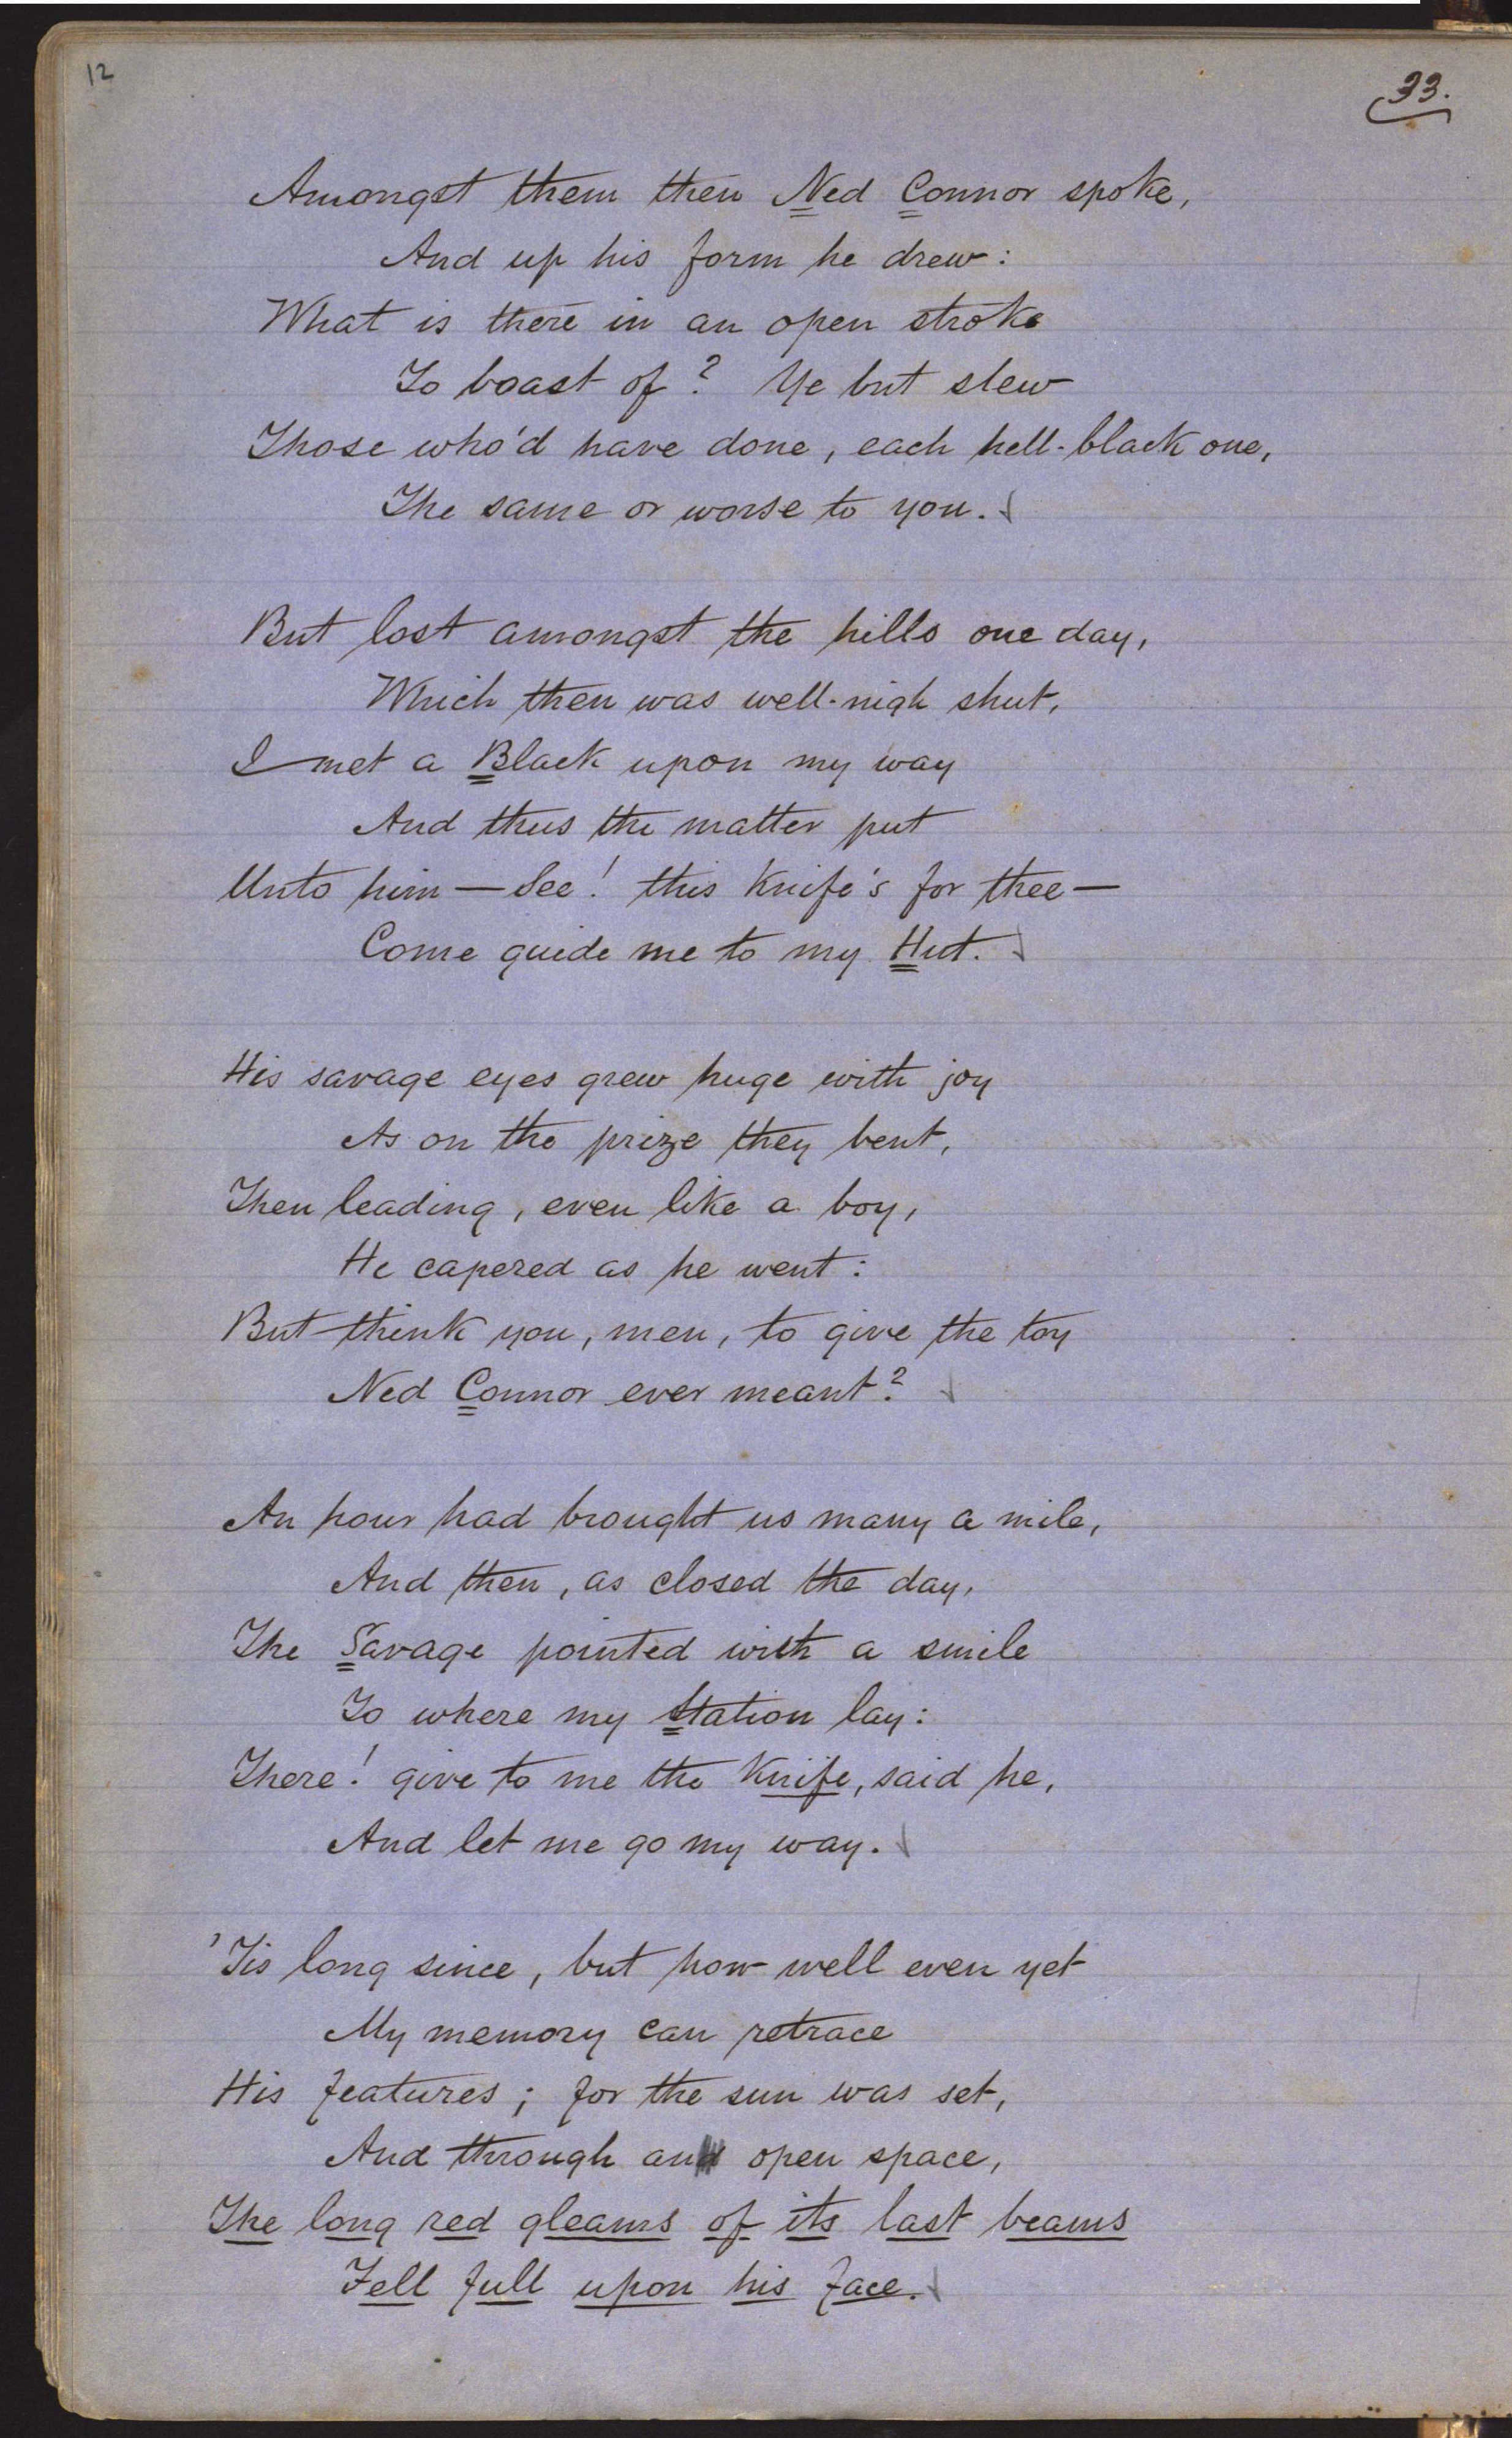 12
33.
Amongst them then Ned Connor spoke,
And up his form he drew:
What is there in an open stroke
To boast of? Ye but slew
Those who'd have done, each hell-black one,
The same or worse to you.
But lost amongst the hills one day,
Which then was well-nigh shut,
I met a Black upon my way
And thus the matter put
Unto him — See! this Knife's for thee —
Come guide me to my Hut.
His savage eyes grew huge with joy
As on the prize they bent,
Then leading, even like a boy,
He capered as he went:
But think you, men, to give the toy
Ned Connor ever meant?
An hour had brought us many a mile,
And then, as closed the day,
The Savage pointed with a smile
To where my Station lay:
There! give to me the Knife, said he,
And let me go my way.
'Tis long since, but how well even yet
My memory can retrace
His features; for the sun was set,
And through an open space,
The long red gleams of its last beams
Fell full upon his face.